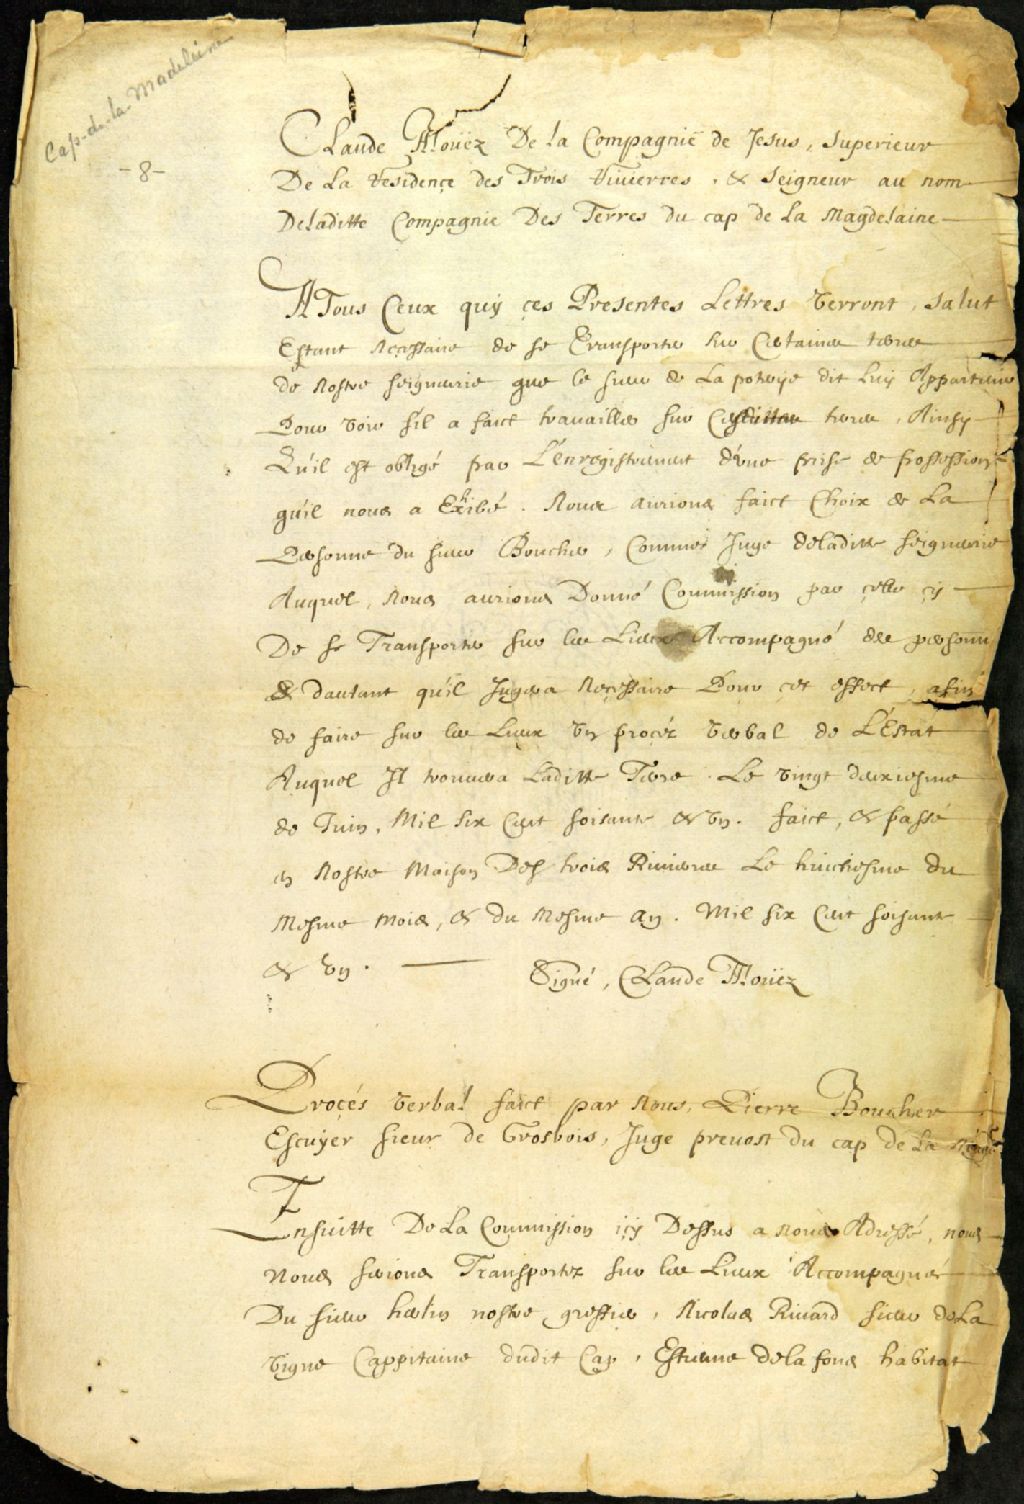 Cap-de-la-Madeleine
-8-
Claude Alloüez De la Compagnie de Jesus, superieur
De La Residençe des Trois Rivierres, & Seigneur au nom
Deladitte Compagnie Des Terres du cap de La Magdelaine
A Tous Ceux quÿ çes Presentes Lettres Verront, salut
Estant Neçessaire de se Transporter sur Certaines terres
de Nostre seigneurie que le sieur de La poterye dit luy Appartenir
Pour Voir s'il a faict travailler sur terre, Ainsy
Qu'il est obligé par L'enregistrement d'une prise de possession
qu'il nous a Exhibé. Nous aurions faict Choix de La
Personne du sieur Boucher, Comme Juge deladitte seigneurie
Auquel, Nous aurions Donné Commission par çelle çy
De se Transporter sur les Lieux Accompagné de personn
& dautant qu'il Jugera Neçessaire Pour çet effect, afin
de faire sur les Lieux Un proçéz Verbal de L'Estat
Auquel Il trouvera Laditte Terre. Le Vingt deuxiesme
de Juin, Mil six Cent soisante & Un. faict, & passé
en Nostre Maison Des trois Rivieres Le huictiesme du
Mesme mois, & du Mesme an. Mil six Cent soisante
& Un. Signé, Claude Alloüez
Proçés Verbal faict par Nous, Pierre Boucher
Escuÿer sieur de Grosbois, Juge prevost du cap de La
Ensuitte De La Commission içÿ Dessus a nous Adressé, nous
Nous serions Transportez sur les Lieux Accompagnés
Du sieur hertin nostre greffier, Nicolas Rivard sieur de La
Vigne Cappitaine dudit Cap, Estienne de la fons habitat